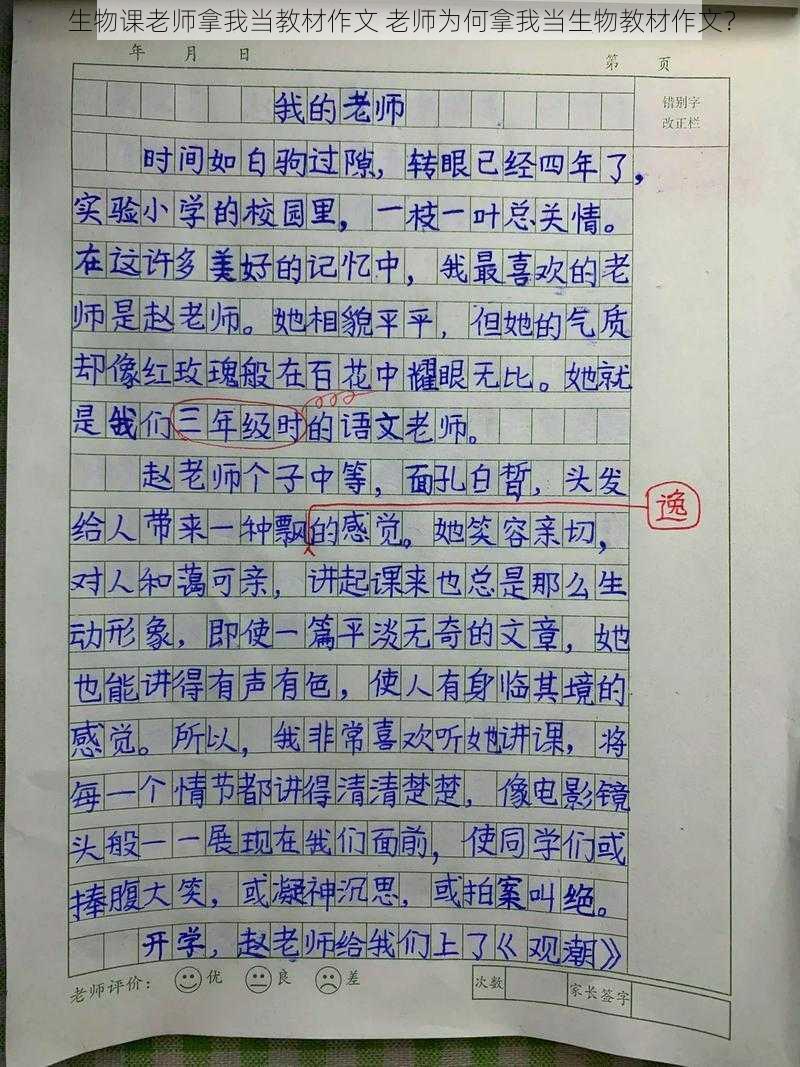 生物课老师拿我当教材作文 老师为何拿我当生物教材作文？
年 月 日
第 页
错别字
改正栏
我的老师
时间如白驹过隙，转眼已经四年了，
实验小学的校园里，一枝一叶总关情。
在这许多美好的记忆中，我最喜欢的老
师是赵老师。她相貌平平，但她的气质
却像红玫瑰般在百花中耀眼无比。她就
是我们三年级时的语文老师。
赵老师个子中等，面孔白皙，头发
给人带来一种飘的感觉。她笑容亲切，
逸
对人和蔼可亲，讲起课来也总是那么生
动形象，即使一篇平淡无奇的文章，她
也能讲得有声有色，使人有身临其境的
感觉。所以，我非常喜欢听她讲课，将
每一个情节都讲得清清楚楚，像电影镜
头般一一展现在我们面前，使同学们或
捧腹大笑，或凝神沉思，或拍案叫绝。
开学，赵老师给我们上了《观潮》
老师评价： 优 良 差
次数 家长签字